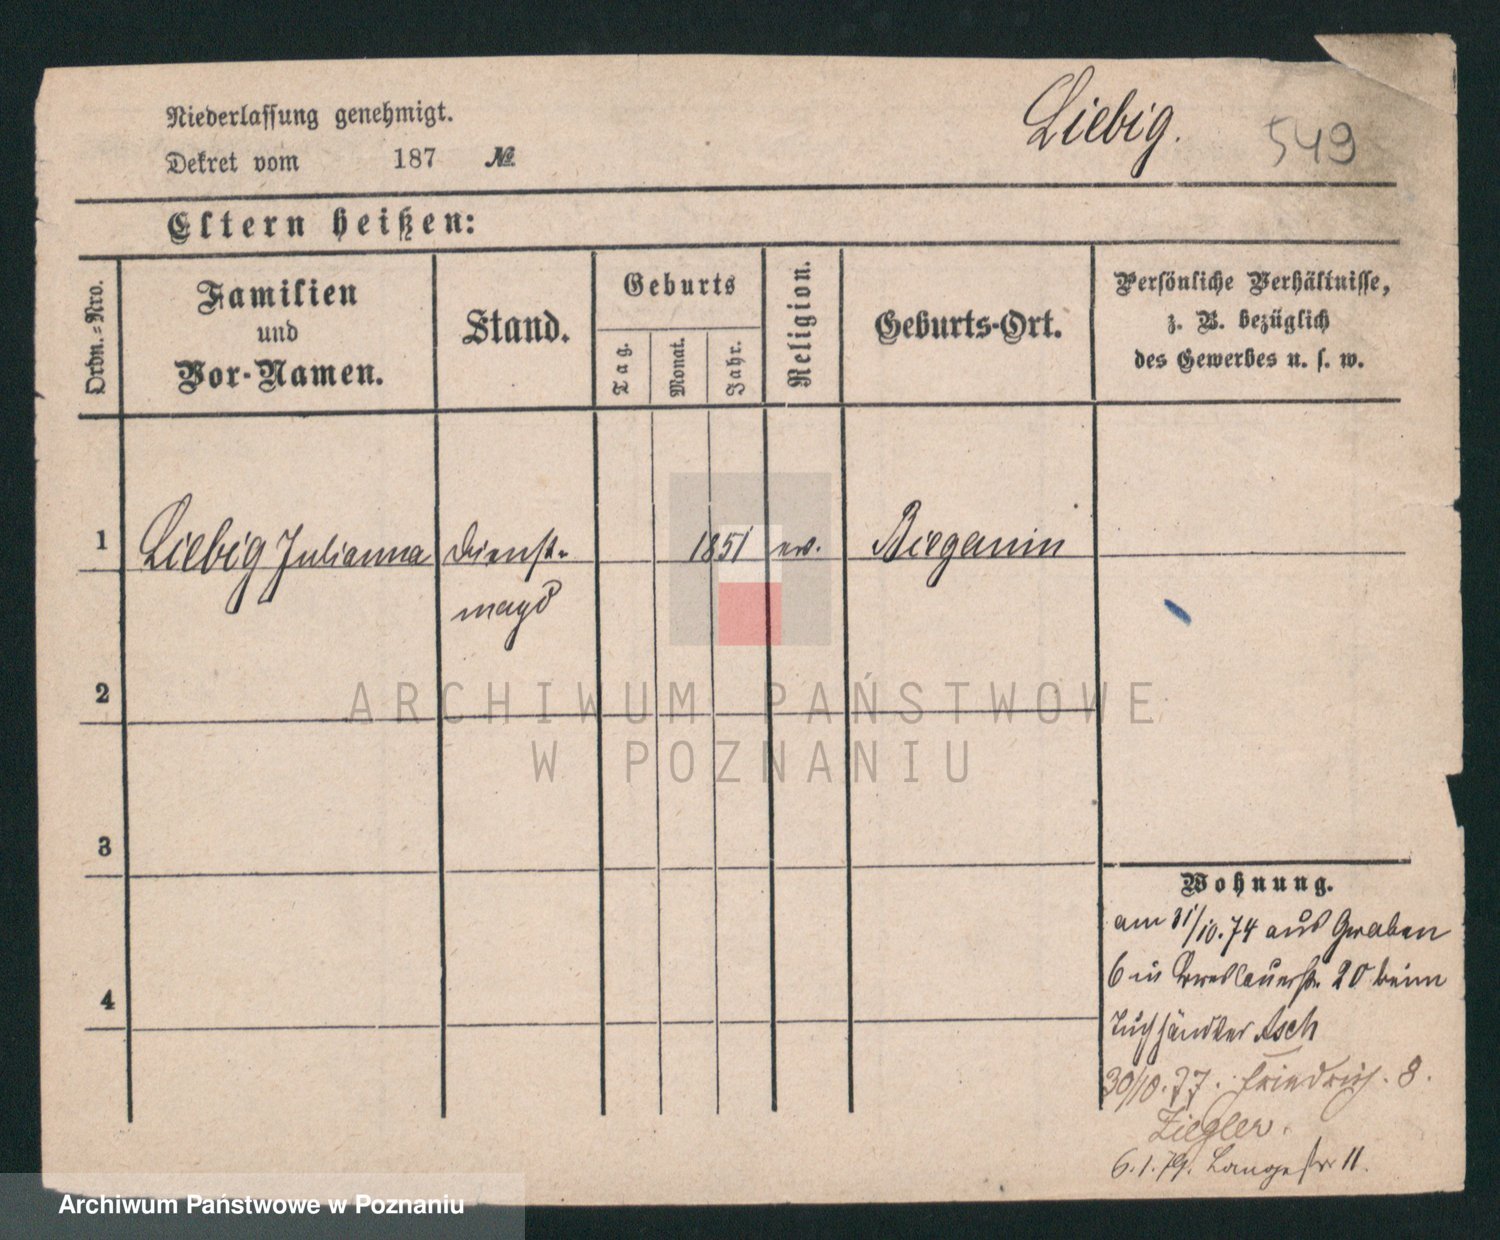 Niederlassung genehmigt.
Dekret vom 187 №
Liebig.
549
Eltern heißen:
Ordn.-Nro.
Familien
und
Vor-Namen.
Stand.
Geburts
Tag.
Monat.
Jahr.
Religion.
Geburts-Ort.
Persönliche Verhältnisse,
z. B. bezüglich
des Gewerbes u. s. w.
1 Liebig Julianna Dienst- 1851 ev. Bieganin
magd
2
3
4
Wohnung.
am 31/10.74 aus Graben
6 in Breslauerstr. 20 beim
Tuchhändler Asch
30/10.77. Friedrich. 8.
Ziegler.
6.1.79. Langestr 11.
ARCHIWUM PAŃSTWOWE
W POZNANIU
Archiwum Państwowe w Poznaniu